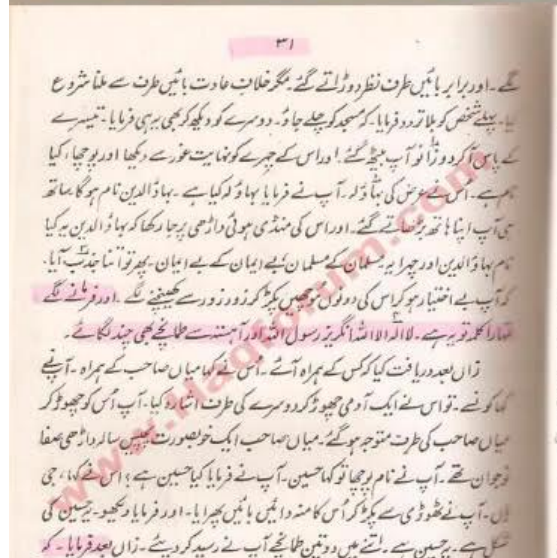 ۳۱
لگے۔ اور برابر بائیں طرف نظر دوڑاتے گئے۔ مگر خلافِ عادت بائیں طرف سے ملنا شروع
کیا۔ پہلے شخص کو بلا تردد فرمایا۔ کہ مسجد کو چلے جاؤ۔ دوسرے کو دیکھ کر بھی یہی فرمایا۔ تیسرے
کے پاس آکر دوزانو آپ بیٹھ گئے۔ اور اس کے چہرے کو نہایت غور سے دیکھا اور پوچھا، کیا
نام ہے۔ اُس نے عرض کی بہاؤلہ۔ آپ نے فرمایا بہاؤلہ کیا ہے۔ بہاؤالدین نام ہوگا ساتھ
ہی آپ اپنا ہاتھ بڑھاتے گئے۔ اور اس کی منڈی ہوئی داڑھی پر جا رکھا کہ بہاؤالدین یہ کیا
نام بہاؤالدین اور چہرا یہ۔ مسلمان کے مسلمان، بے ایمان کے بے ایمان۔ پھر تو اتنا جذب آیا۔
کہ آپ بے اختیار ہو کر اس کی دونوں مونچھیں پکڑ کر زور زور سے کھینچنے لگے۔ اور فرمانے لگے
تمہارا کلمہ تو یہ ہے۔ لا الٰہ الا اللہ انگریز رسول اللہ اور آہستہ سے طمانچے بھی چند لگائے۔
زاں بعد دریافت کیا کہ کس کے ہمراہ آئے۔ اُس نے کہا میاں صاحب کے ہمراہ۔ آپنے
کہا کونسے۔ تو اس نے ایک آدمی چھوڑ کر دوسرے کی طرف اشارہ کیا۔ آپ اُس کو چھوڑ کر
میاں صاحب کی طرف متوجہ ہو گئے۔ میاں صاحب ایک خوبصورت بیس سالہ داڑھی صفا
نوجوان تھے۔ آپ نے نام پوچھا تو کہا حسین۔ آپ نے فرمایا کیا حسین ہے؟ اس نے کہا، جی
ہاں۔ آپ نے ٹھوڑی سے پکڑ کر اُس کا منہ دائیں بائیں پھرایا۔ اور فرمایا دیکھو۔ یہ حسین کی
شکل ہے۔ یہ حسین ہے۔ اتنے میں دو تین طمانچے آپ نے رسید کر دیئے۔ زاں بعد فرمایا۔ کہ
www.Haqforum.com